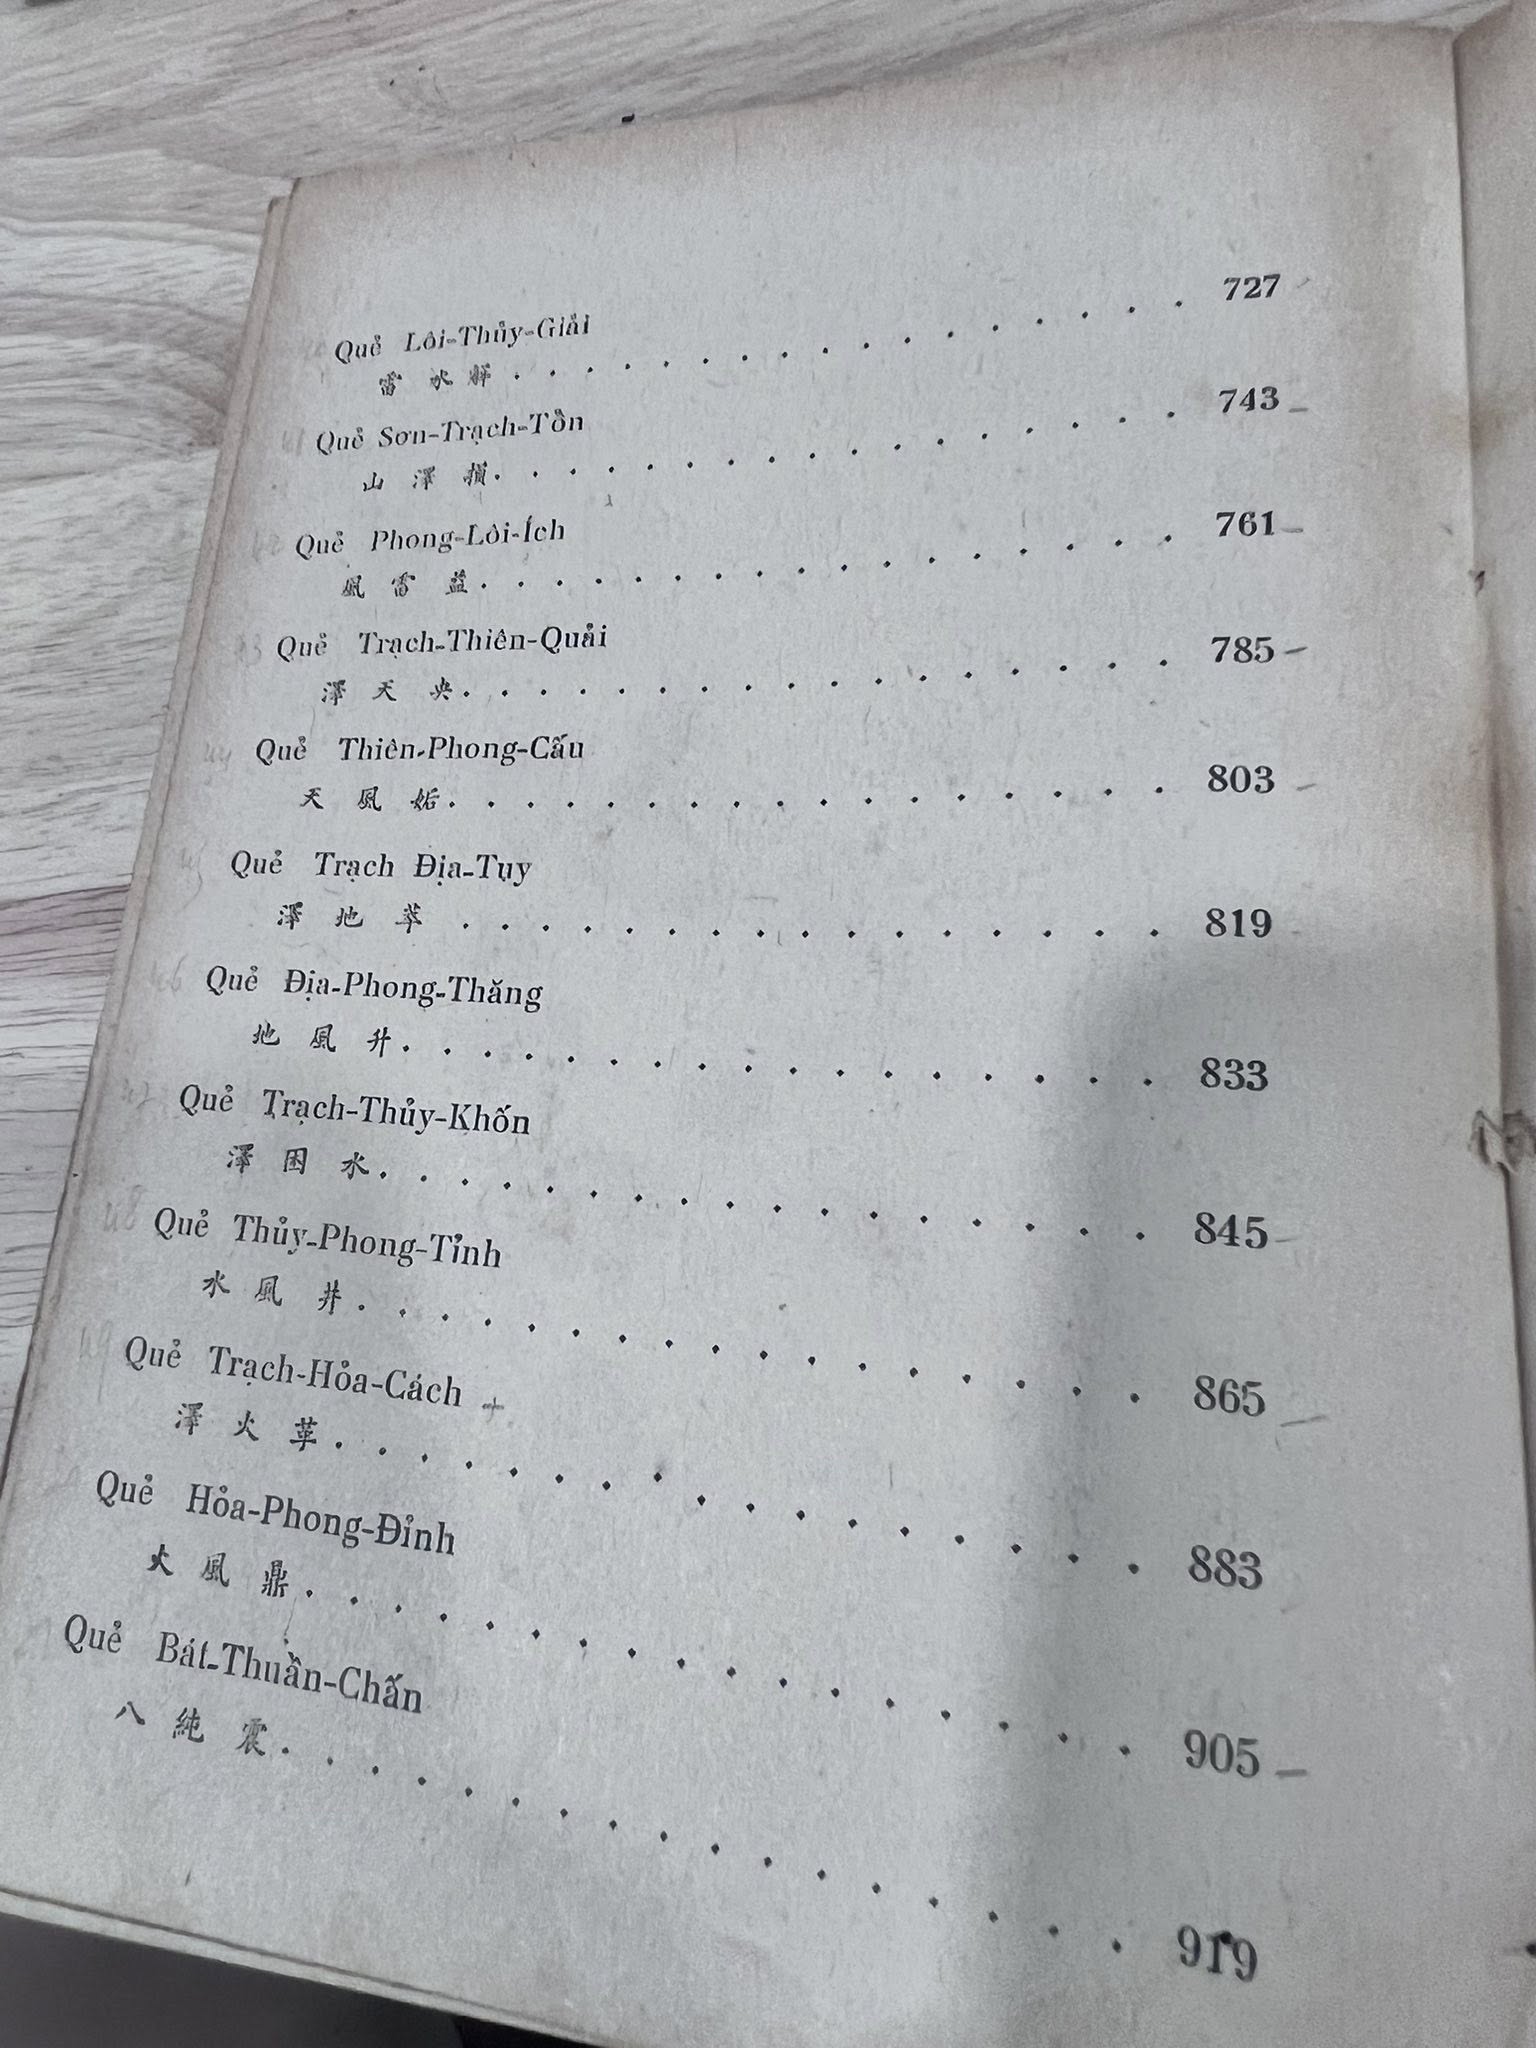 Quẻ Lôi-Thủy-Giải
雷水解 . . . . . . . . . . . . . . . . . 727
Quẻ Sơn-Trạch-Tổn
山澤損 . . . . . . . . . . . . . . . . . 743
Quẻ Phong-Lôi-Ích
風雷益 . . . . . . . . . . . . . . . . . 761
Quẻ Trạch-Thiên-Quải
澤天夬 . . . . . . . . . . . . . . . . . 785
Quẻ Thiên-Phong-Cấu
天風姤 . . . . . . . . . . . . . . . . . 803
45 Quẻ Trạch Địa-Tụy
澤地萃 . . . . . . . . . . . . . . . . . 819
46 Quẻ Địa-Phong-Thăng
地風升 . . . . . . . . . . . . . . . . . 833
47 Quẻ Trạch-Thủy-Khốn
澤困水 . . . . . . . . . . . . . . . . . 845
48 Quẻ Thủy-Phong-Tỉnh
水風井 . . . . . . . . . . . . . . . . . 865
49 Quẻ Trạch-Hỏa-Cách +
澤火革 . . . . . . . . . . . . . . . . . 883
Quẻ Hỏa-Phong-Đỉnh
火風鼎 . . . . . . . . . . . . . . . . . 905
Quẻ Bát-Thuần-Chấn
八純震 . . . . . . . . . . . . . . . . . 919